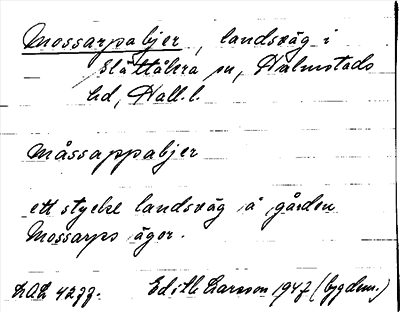 Mossarpabjer, landsväg i
Slättåkra sn, Halmstads
hd, Hall. l.
måssappabjer
ett stycke landsväg å gården
Mossarps ägor.
LAL 4277. Edith Larsson 1947 (bygdem.)